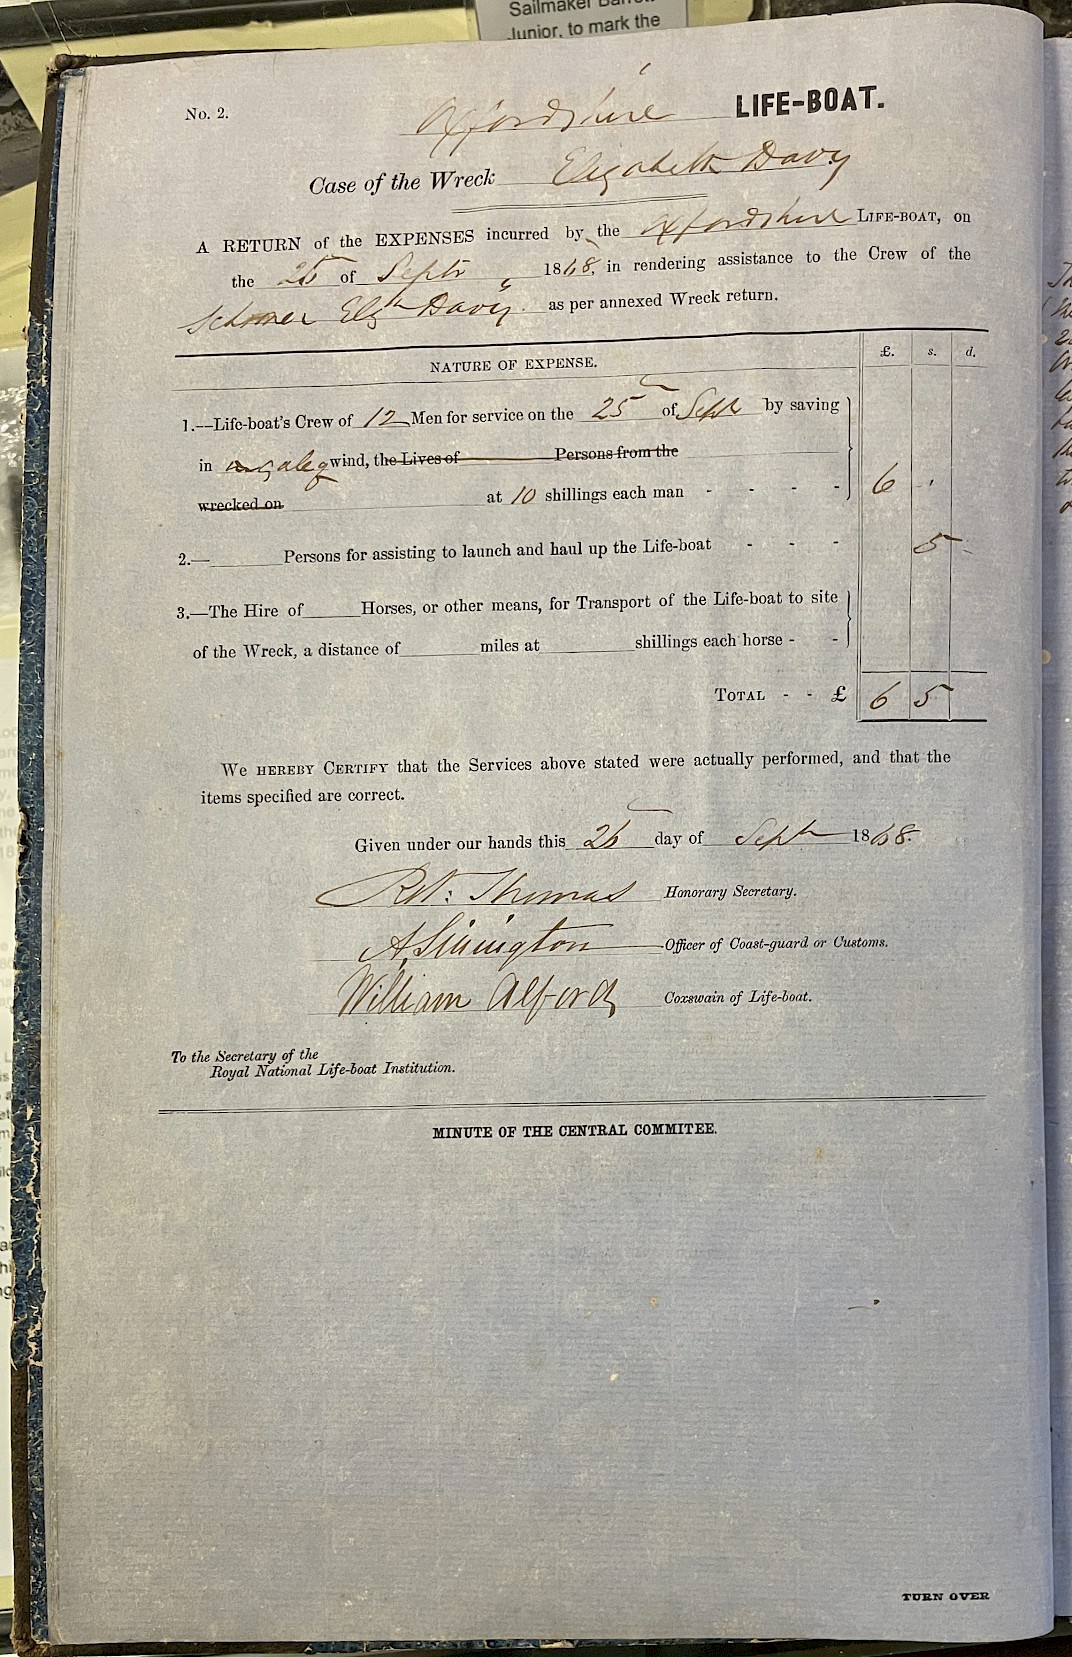 Sailmaker
Junior, to mark the
No. 2.
Oxfordshire LIFE-BOAT.
Case of the Wreck Elizabeth Davy
A RETURN of the EXPENSES incurred by the Oxfordshire LIFE-BOAT, on
the 25 of Septr 1868, in rendering assistance to the Crew of the
Schooner Elizh Davy. as per annexed Wreck return.
NATURE OF EXPENSE. £. s. d.
1.—Life-boat's Crew of 12 Men for service on the 25 of Sept by saving
in wind, the Lives of Persons from the
wrecked on at 10 shillings each man - - - - 6
2.— Persons for assisting to launch and haul up the Life-boat - - - 5
3.—The Hire of Horses, or other means, for Transport of the Life-boat to site
of the Wreck, a distance of miles at shillings each horse - -
TOTAL - - £ 6 5
We HEREBY CERTIFY that the Services above stated were actually performed, and that the
items specified are correct.
Given under our hands this 26 day of Sept 1868.
Rt: Thomas Honorary Secretary.
Officer of Coast-guard or Customs.
William Alford Coxswain of Life-boat.
To the Secretary of the
Royal National Life-boat Institution.
MINUTE OF THE CENTRAL COMMITEE.
TURN OVER